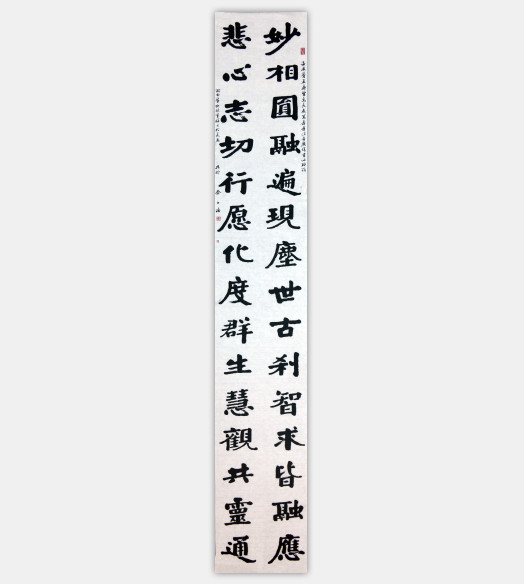 妙相圓融遍現塵世古刹智求皆融應
悲心志切行愿化度群生慧觀共靈通